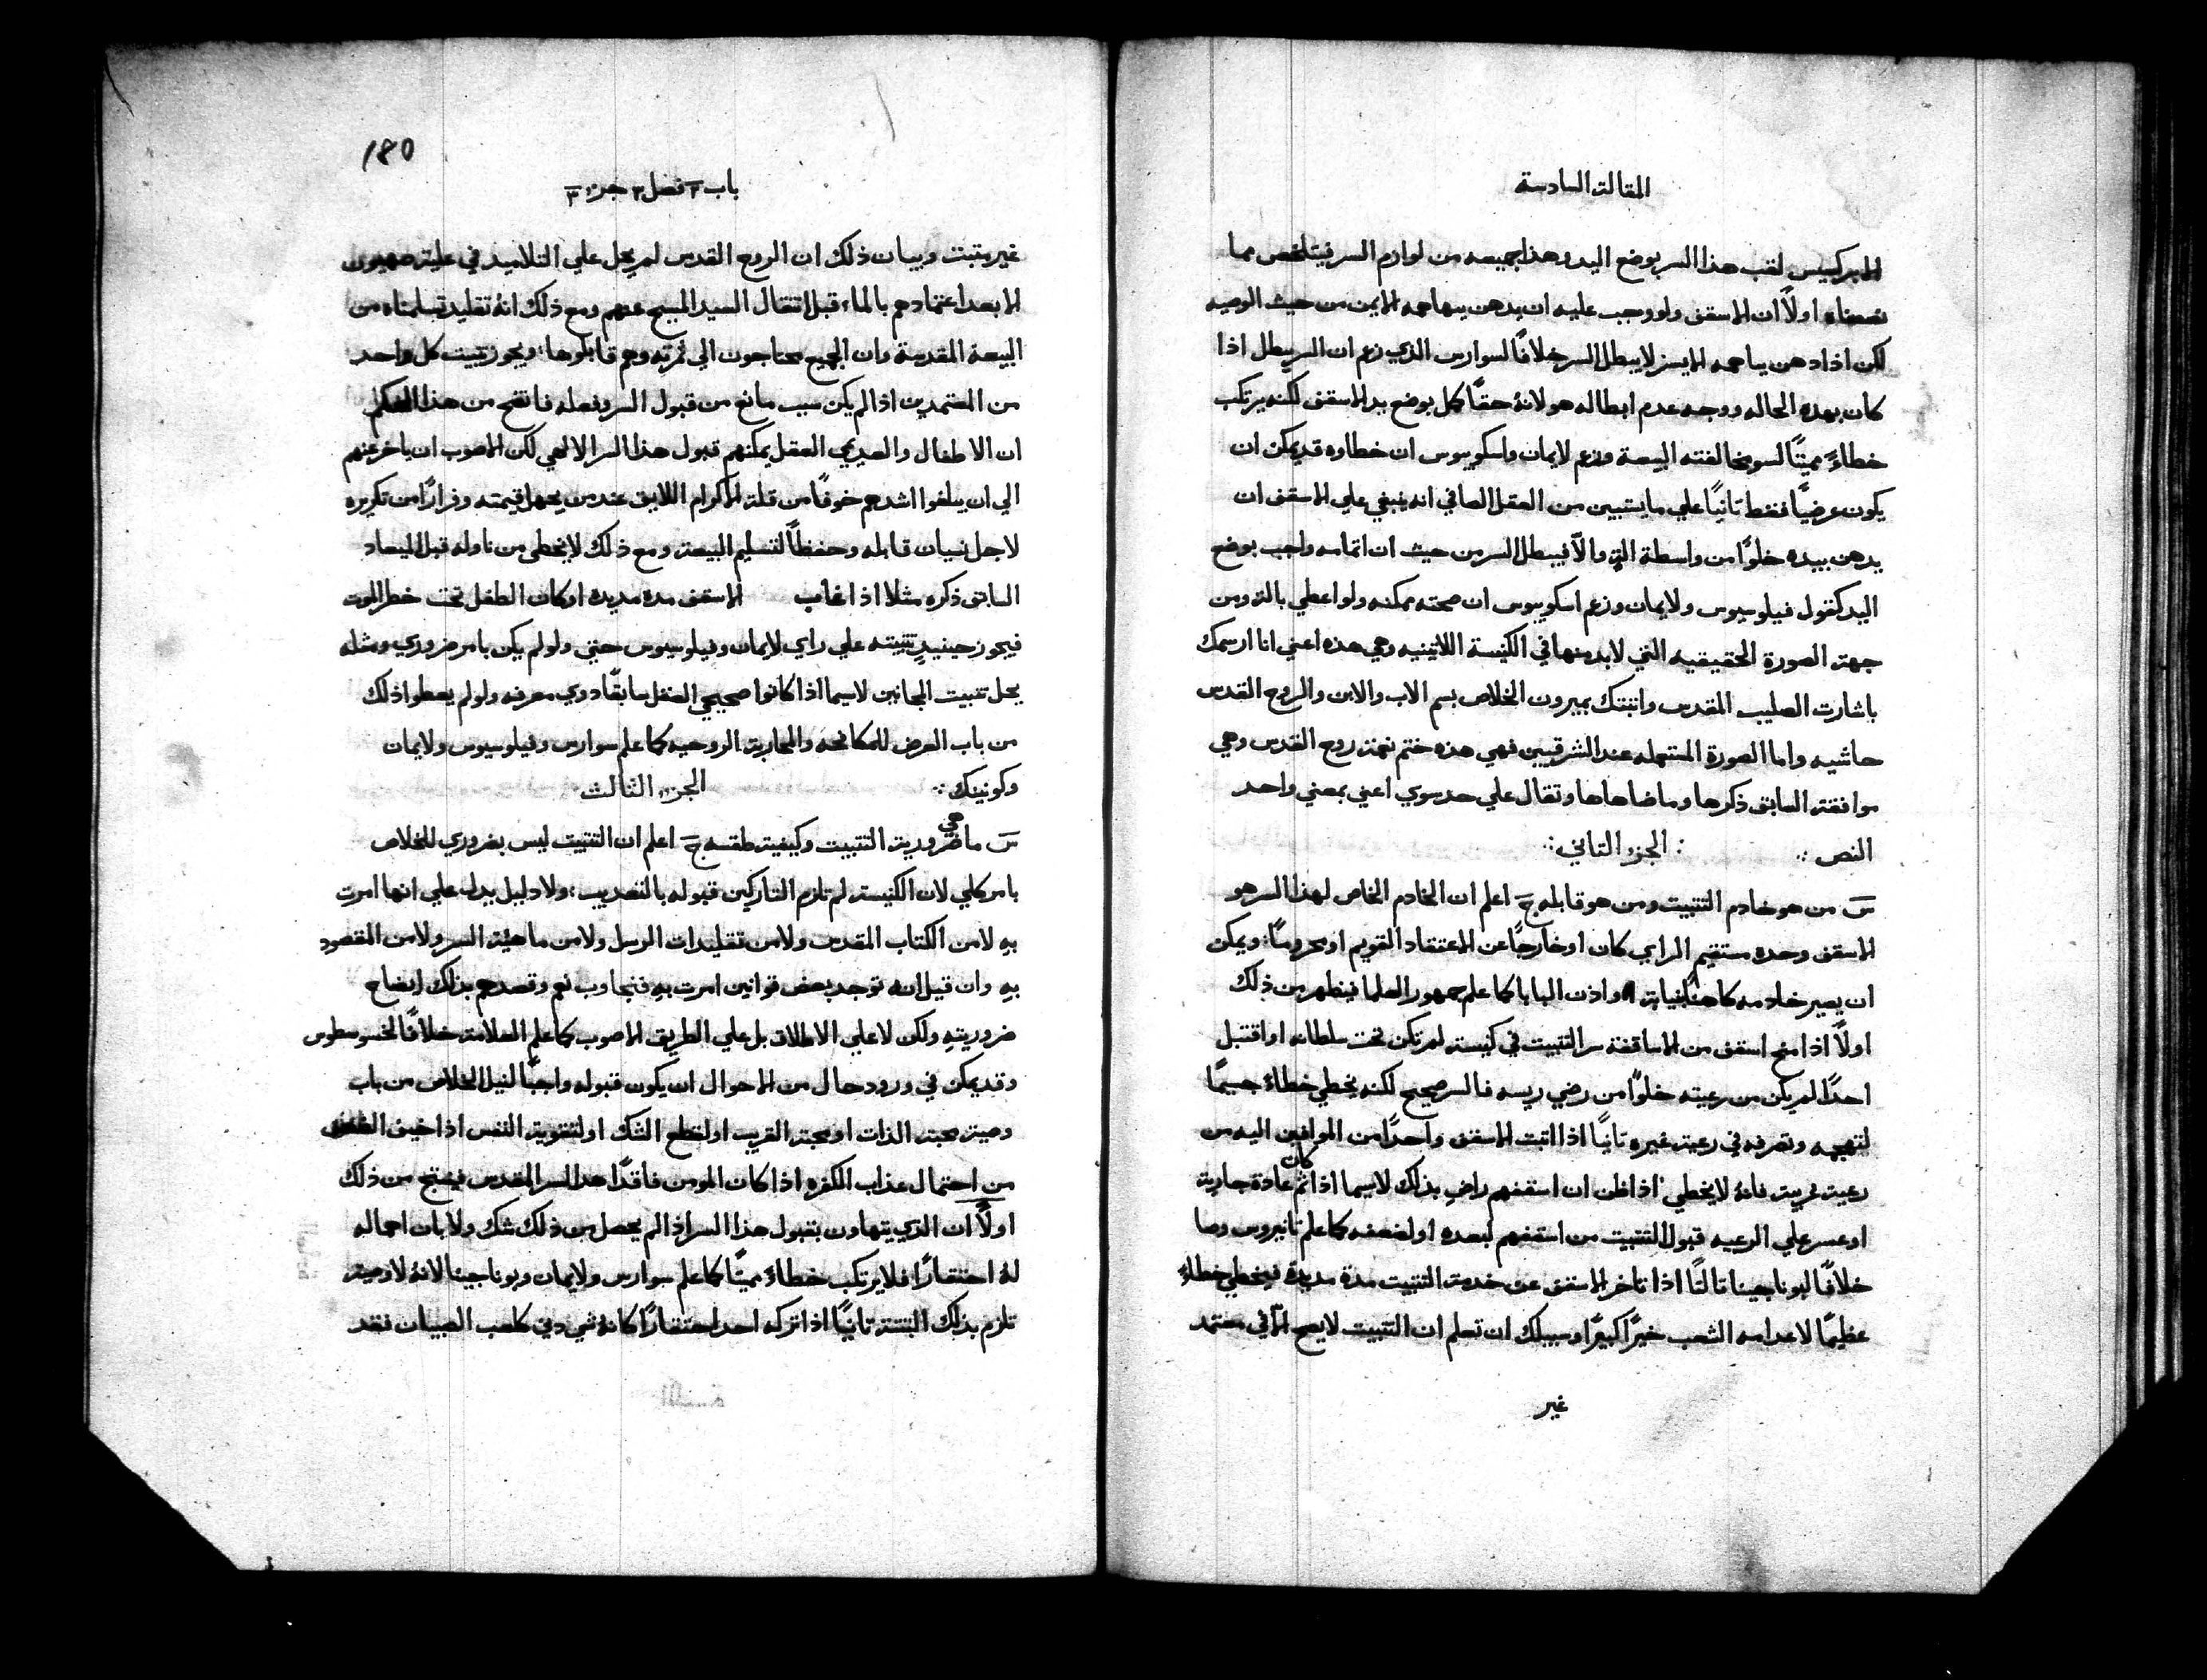 المقالة السادسة
الابركسيس لقب هذا السر بوضع اليد وهذا جميعه من لوازم السر فيتلخص مما
اولاً ان الاسقف ولو وجب عليه ان يدهن بيهامه الايمن من حيث الوصيه
لكن اذا دهن بباهمه الايسر لا يبطل السر خلافًا لسوارس الذي زعم ان السر يبطل اذا
كان بهذه الحاله ووجه عدم ابطاله هو لانهُ حقًا كمل بوضع يد الاسقف لكنه يرتكب
خطاءً مميتًا لسو مخالفته البيعة وزعم لايمان واسكوبوس ان خطاوه قد يمكن ان
يكون عرضيًا فقط ثانيًا علي ما يستبين من العقل الصافي انه ينبغي علي الاسقف ان
يدهن بيده خلوًا من واسطة الةٍ والّا فيبطل السر من حيث ان اتمامه واجب بوضع
اليد كقول فيلوسيوس ولايمان وزعم اسكوبوس ان صحته ممكنه ولو اعطي بالة ومن
جهة الصورة الحقيقيه التي لا بد منها في الكنيسة اللاتينيه وهي هذه اعني انا ارسمك
باشارت الصليب المقدس واثبتك بميرون الخلاص بسم الاب والابن والروح القدس
حاشيه واما الصورة المستعمله عند الشرقيين فهي هذه ختم نعمة روح القدس وهي
موافقة السابق ذكرها وما ضاهاها وتقال علي حد سوي اعني بمعني واحد
النص ∴ ∴ الجزء الثاني ∴
س من هو خادم التثبيت ومن هو قابله ج اعلم ان الخادم الخاص لهذا السر هو
الاسقف وحده مستقيم الراي كان او خارجًا عن الاعتقاد القويم او محرومًا؛ ويمكن
ان يصير خادمه كاهنًا بنيابة واذن البابا كما علم جمهور العلما فيظهر من ذلك
اولاً اذا منح اسقف من الاساقفة سر التثبيت في كنيسة لم تكن تحت سلطانه او اقتبل
احدًا لم يكن من رعيته خلوًا من رضي ريسه فالسر صحيح لكنه يخطي خطاءً جسيمًا
لتهجمه وتصرفه في رعية غيره ثانيًا اذا اثبت الاسقف واحدًا من الموافين اليه من
رعية غريبة فانهُ لا يخطي اذا ظن ان اسقفهم راضٍ بذلك لا سيما اذا كان ثم عادة جارية
او عسر علي الرعيه قبول التثبيت من اسقفهم لبعده او لضعفه كما علم تانيروس وصا
خلافًا لبوناجينا ثالثًا اذا تاخر الاسقف عن خدمة التثبيت مدة مديدة فيخطي خطاءً
عظيمًا لاعدامه الشعب خيرًا كبيرًا وسبيلك ان تعلم ان التثبيت لا يصح الّا في معتمد
غير
180
باب ٣ فصل ٣ جزء ٣
غير مثبت وبيان ذلك ان الروح القدس لم يحل علي التلاميذ في علية صهيون
الا بعد اعتمادهم بالماء قبل انتقال السيد المسيح عنهم ومع ذلك انهُ تقليد تسلمناه من
البيعة المقدسة وان الجميع محتاجون الي ثمرته وهم قابلوها؛ ويجوز تثبيت كل واحد
من المعتمدين اذا لم يكن سبب مانع من قبول السر وفعله فانتج من هذا الحكم
ان الاطفال والعديمي العقل يمكنهم قبول هذا السر الالهي لكن الاصوب ان ياخر عنهم
الي ان يبلغوا اشدهم خوفًا من قلة الاكرام اللايق عند من يجهل قيمته وفرارًا من تكريره
لاجل نسيان قابله وحفظًا لتسليم البيعة ومع ذلك لا يخطي من ناوله قبل الميعاد
السابق ذكره مثلا اذا غاب الاسقف مدة مديدة او كان الطفل تحت خطر الموت
فيجوز حينيذٍ تثبيته علي راي لايمان وفيلوسيوس حتي ولو لم يكن بامر ضروري ومثله
يحل تثبيت المجانين لا سيما اذا كانوا صحيحي العقل سابقًا ذوي معرفه ولو لم يعطوا ذلك
من باب الفرض للمكافحة والمحاربة الروحيه كما علم سوارس وفيلوسيوس ولايمان
وكونينك ∴ الجزء الثالث
س ما هي ضرورية التثبيت وكيفية طقسه ج اعلم ان التثبيت ليس بضروري للخلاص
بامر كلي لان الكنيسة لم تلزم التاركين قبوله بالتعذيب؛ ولا دليل يدل علي انها امرت
بهِ لا من الكتاب المقدس ولا من تقليدات الرسل ولا من ماهية السر ولا من المقصود
بهِ وان قيل انه توجد بعض قوانين امرت بهِ فنجاوب نعم وقصدهم بذلك ايضاح
ضروريتهِ ولكن لا علي الاطلاق بل علي الطريق الاصوب كما علم العلامة خلافًا لخسوسطوس
وقد يمكن في ورود حال من الاحوال ان يكون قبوله واجبًا لنيل الخلاص من باب
وصية محبة الذات او محبة القريب او لقطع الشك او لتقوية النفس اذا خيف
من احتمال عذاب الكفره اذا كان المومن فاقدًا هذا السر المقدس فينتج من ذلك
اولاً ان الذي يتهاون بقبول هذا السر اذا لم يحصل من ذلك شك ولا بان اهماله
لهُ احتقارًا فلا يرتكب خطاءً مميتًا كما علم سوارس ولايمان وبوناجينا لانهُ لا وصية
تلزم بذلك البتة ثانيًا اذا تركه احد احتقارًا كانهُ شي دني كلعب الصبيان فقد